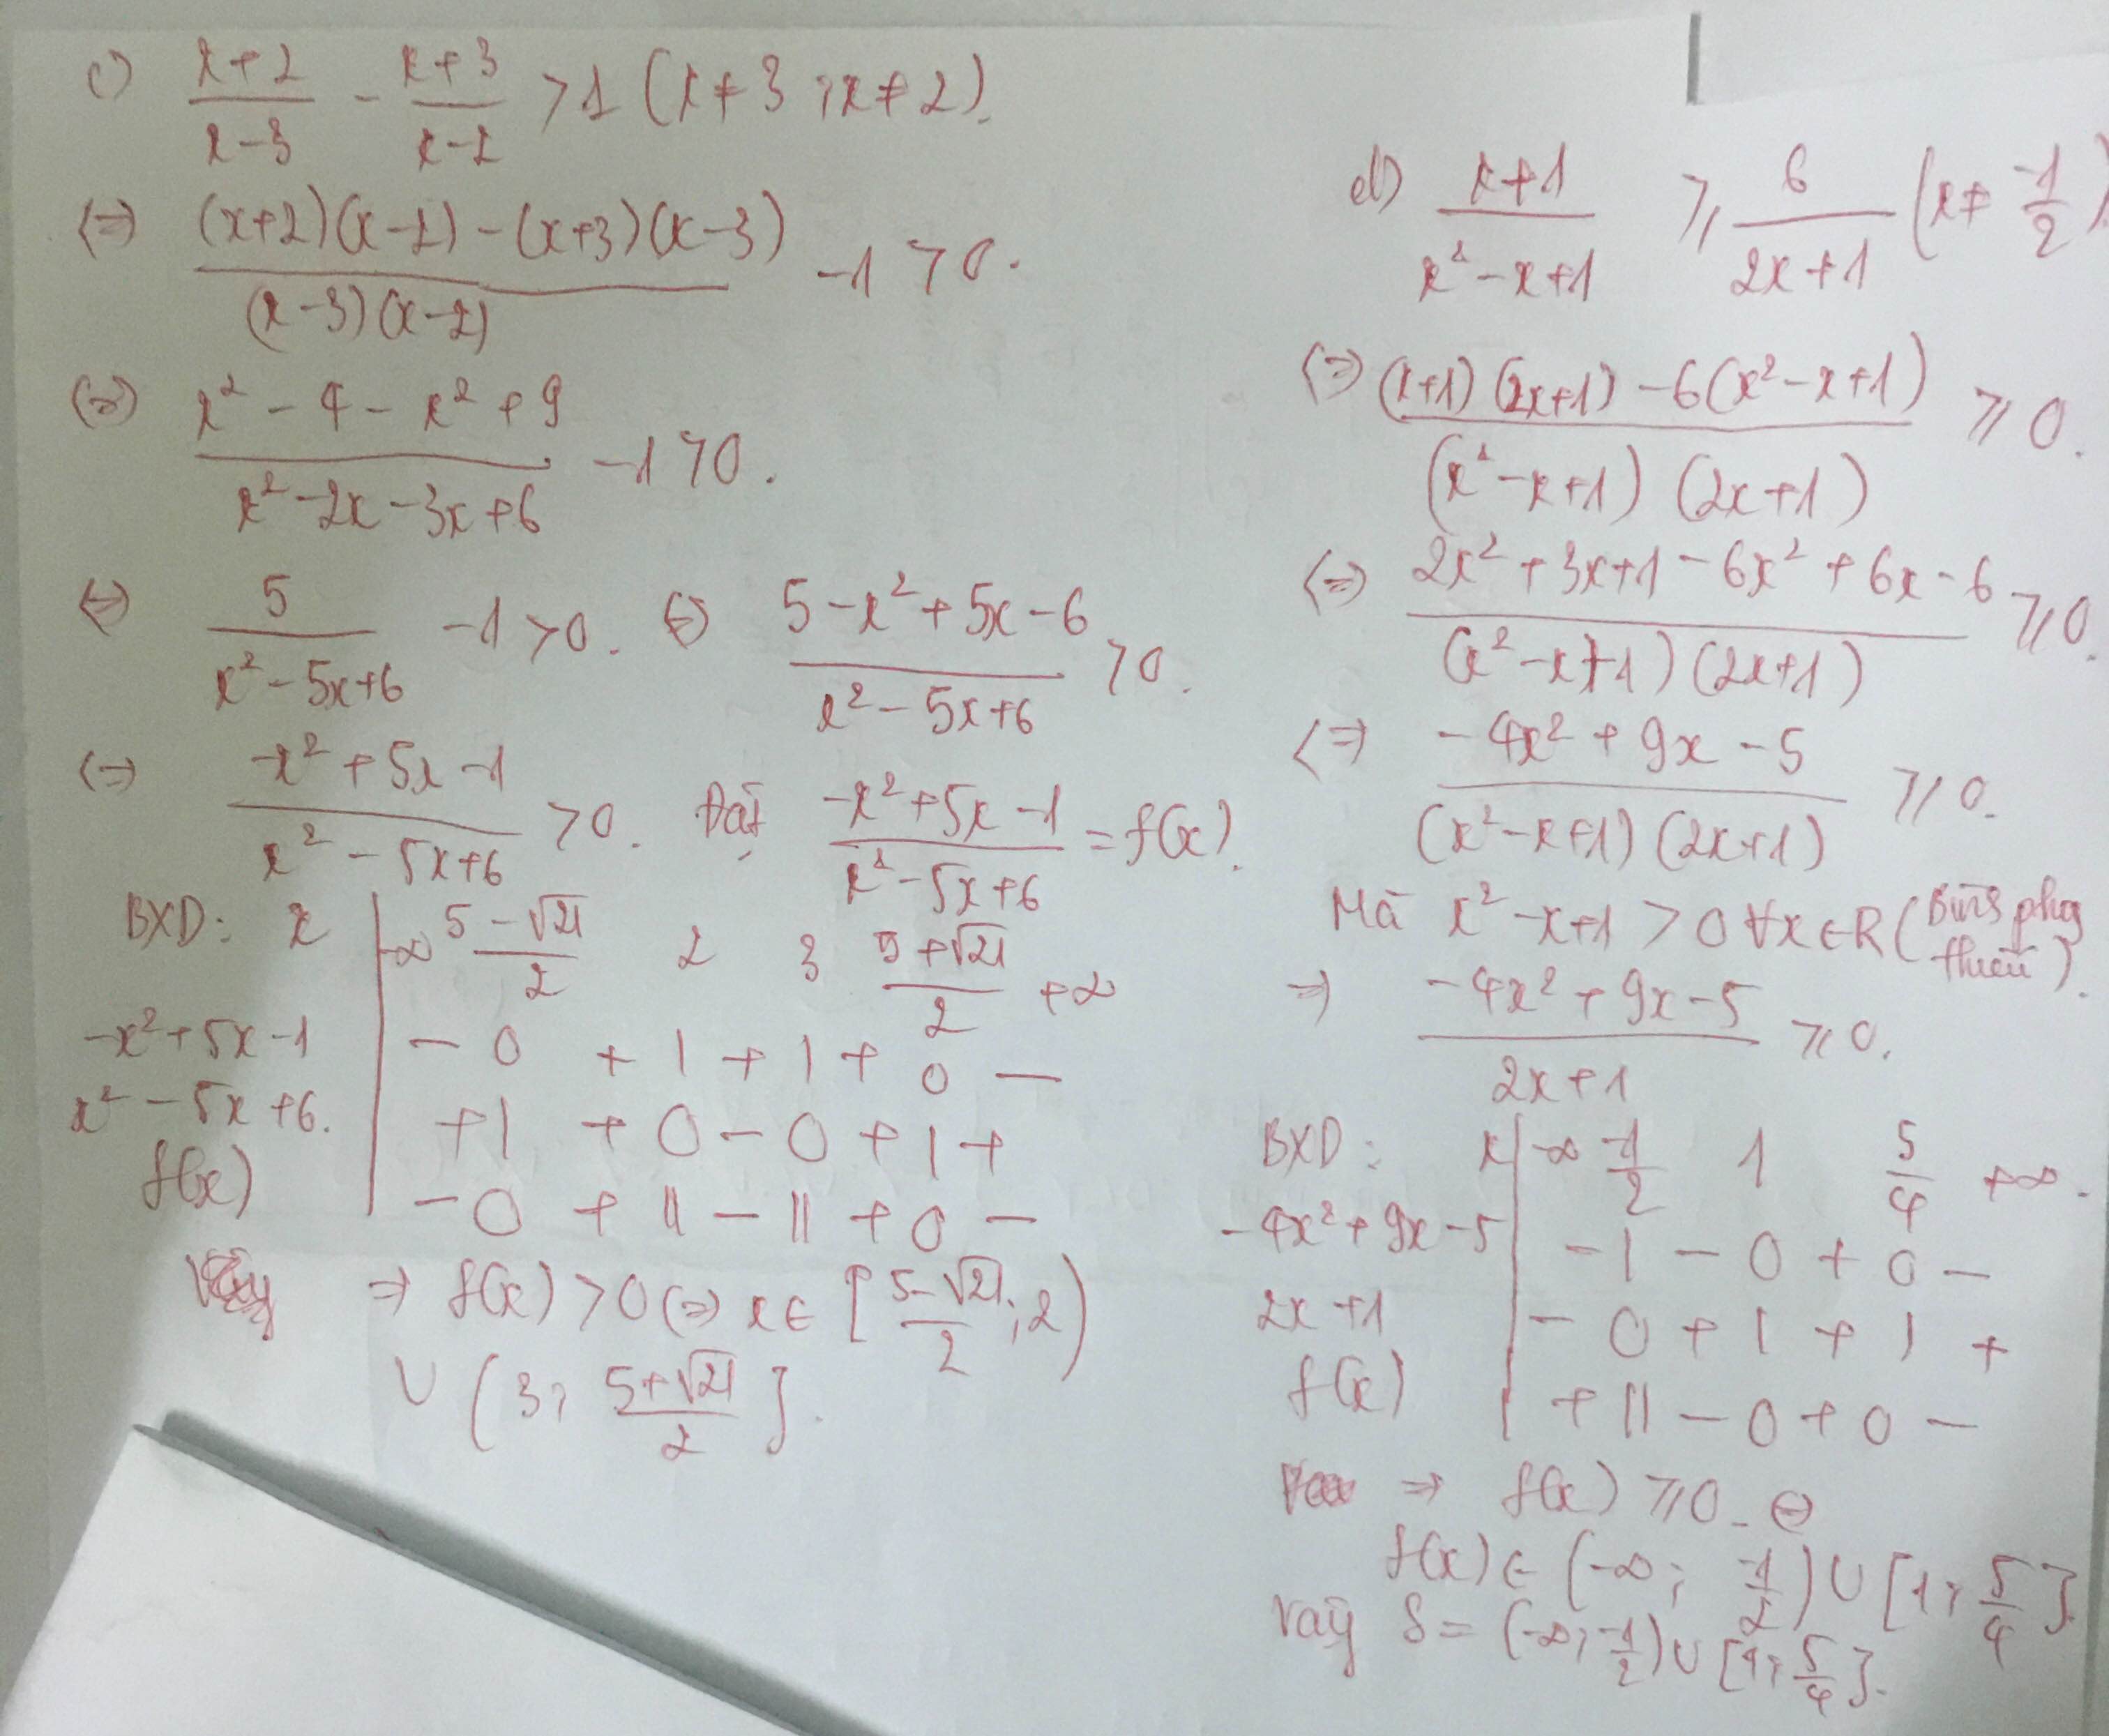 c) (x+2)/(x-3) - (x+3)/(x-2) > 1 (x≠3; x≠2).
(=) ((x+2)(x-2) - (x+3)(x-3))/((x-3)(x-2)) - 1 > 0.
(=) (x² - 4 - x² + 9)/(x² - 2x - 3x + 6) - 1 > 0.
(=) 5/(x² - 5x + 6) - 1 > 0. (=) (5 - x² + 5x - 6)/(x² - 5x + 6) > 0.
(=) (-x² + 5x - 1)/(x² - 5x + 6) > 0. Đặt (-x² + 5x - 1)/(x² - 5x + 6) = f(x).
BXD: x | -∞ (5-√21)/2 2 3 (5+√21)/2 +∞
-x² + 5x - 1 | - 0 + | + | + 0 -
x² - 5x + 6. | + | + 0 - 0 + | +
f(x) | - 0 + || - || + 0 -
⇒ f(x) > 0 (=) x ∈ [(5-√21)/2; 2)
∪ (3; (5+√21)/2].
d) (x+1)/(x² - x + 1) ⩾ 6/(2x+1) (x ≠ -1/2)
(=) ((x+1)(2x+1) - 6(x² - x + 1))/((x² - x + 1)(2x+1)) ⩾ 0.
(=) (2x² + 3x + 1 - 6x² + 6x - 6)/((x² - x + 1)(2x+1)) ⩾ 0.
<=> (-4x² + 9x - 5)/((x² - x + 1)(2x+1)) ⩾ 0.
Mà x² - x + 1 > 0 ∀x ∈ R (
⇒ (-4x² + 9x - 5)/(2x+1) ⩾ 0.
BXD: x | -∞ -1/2 1 5/4 +∞.
-4x² + 9x - 5 | - | - 0 + 0 -
2x + 1 | - 0 + | + | +
f(x) | + || - 0 + 0 -
⇒ f(x) ⩾ 0. (=)
f(x) ∈ (-∞; -1/2) ∪ [1; 5/4]
Vậy S = (-∞; -1/2) ∪ [1; 5/4].